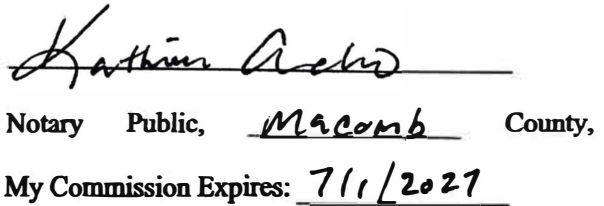 Notary Public, Macomb County,
My Commission Expires: 7/1/2027